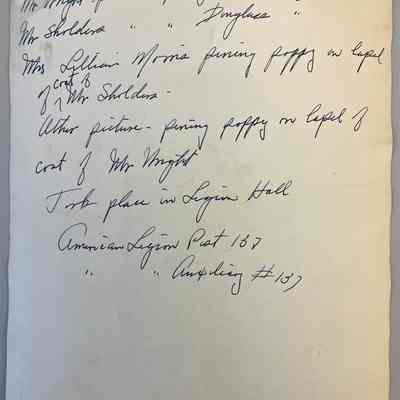 Mr Wright
Mr Sholders " " Douglass "
Mrs Lillian Morris pining poppy on lapel
of coat of Mr Sholders -
Other picture - pining poppy on lapel of
coat of Mr Wright
Took place in Legion Hall
American Legion Post 137
" " Auxiliary # 137